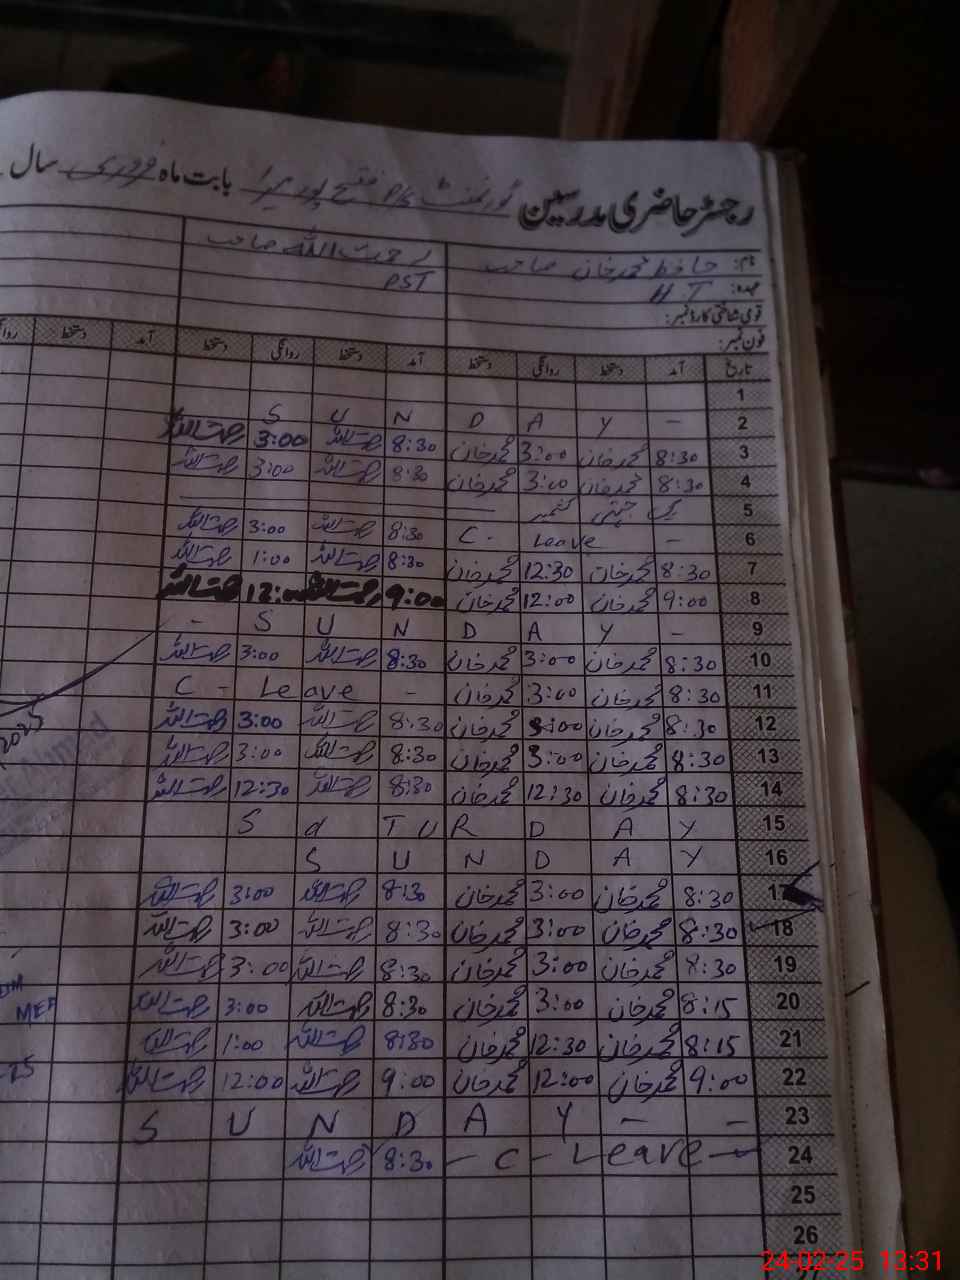 رجسٹر حاضری مدرسین گورنمنٹ P/S فتح پور میرا بابت ماہ فروری سال
نام: حافظ محمد خان صاحب رحمت اللہ صاحب
عہدہ: H.T PST
قومی شناختی کارڈ نمبر:
فون نمبر:
تاریخ آمد دستخط روانگی دستخط آمد دستخط روانگی دستخط آمد دستخط
1
2 S U N D A Y -
3 8:30 محمد خان 3:00 محمد خان 8:30 رحمت اللہ 3:00 رحمت اللہ
4 8:30 محمد خان 3:00 محمد خان 8:30 رحمت اللہ 3:00 رحمت اللہ
5 یک جہتی کشمیر
6 C. Leave - 8:30 رحمت اللہ 3:00 رحمت اللہ
7 8:30 محمد خان 12:30 محمد خان 8:30 رحمت اللہ 1:00 رحمت اللہ
8 9:00 محمد خان 12:00 محمد خان 9:00 رحمت اللہ 12:00 رحمت اللہ
9 - S U N D A Y -
10 8:30 محمد خان 3:00 محمد خان 8:30 رحمت اللہ 3:00 رحمت اللہ
11 8:30 محمد خان 3:00 محمد خان C - Leave -
12 8:30 محمد خان 3:00 محمد خان 8:30 رحمت اللہ 3:00 رحمت اللہ
13 8:30 محمد خان 3:00 محمد خان 8:30 رحمت اللہ 3:00 رحمت اللہ
14 8:30 محمد خان 12:30 محمد خان 8:30 رحمت اللہ 12:30 رحمت اللہ
15 S a T U R D A Y
16 S U N D A Y
17 8:30 محمد خان 3:00 محمد خان 8:30 رحمت اللہ 3:00 رحمت اللہ
18 8:30 محمد خان 3:00 محمد خان 8:30 رحمت اللہ 3:00 رحمت اللہ
19 8:30 محمد خان 3:00 محمد خان 8:30 رحمت اللہ 3:00 رحمت اللہ
20 8:15 محمد خان 3:00 محمد خان 8:30 رحمت اللہ 3:00 رحمت اللہ
21 8:15 محمد خان 12:30 محمد خان 8:30 رحمت اللہ 1:00 رحمت اللہ
22 9:00 محمد خان 12:00 محمد خان 9:00 رحمت اللہ 12:00 رحمت اللہ
23 S U N D A Y - -
24 - C - Leave - 8:30 رحمت اللہ
25
26
2025
24-02-25 13:31